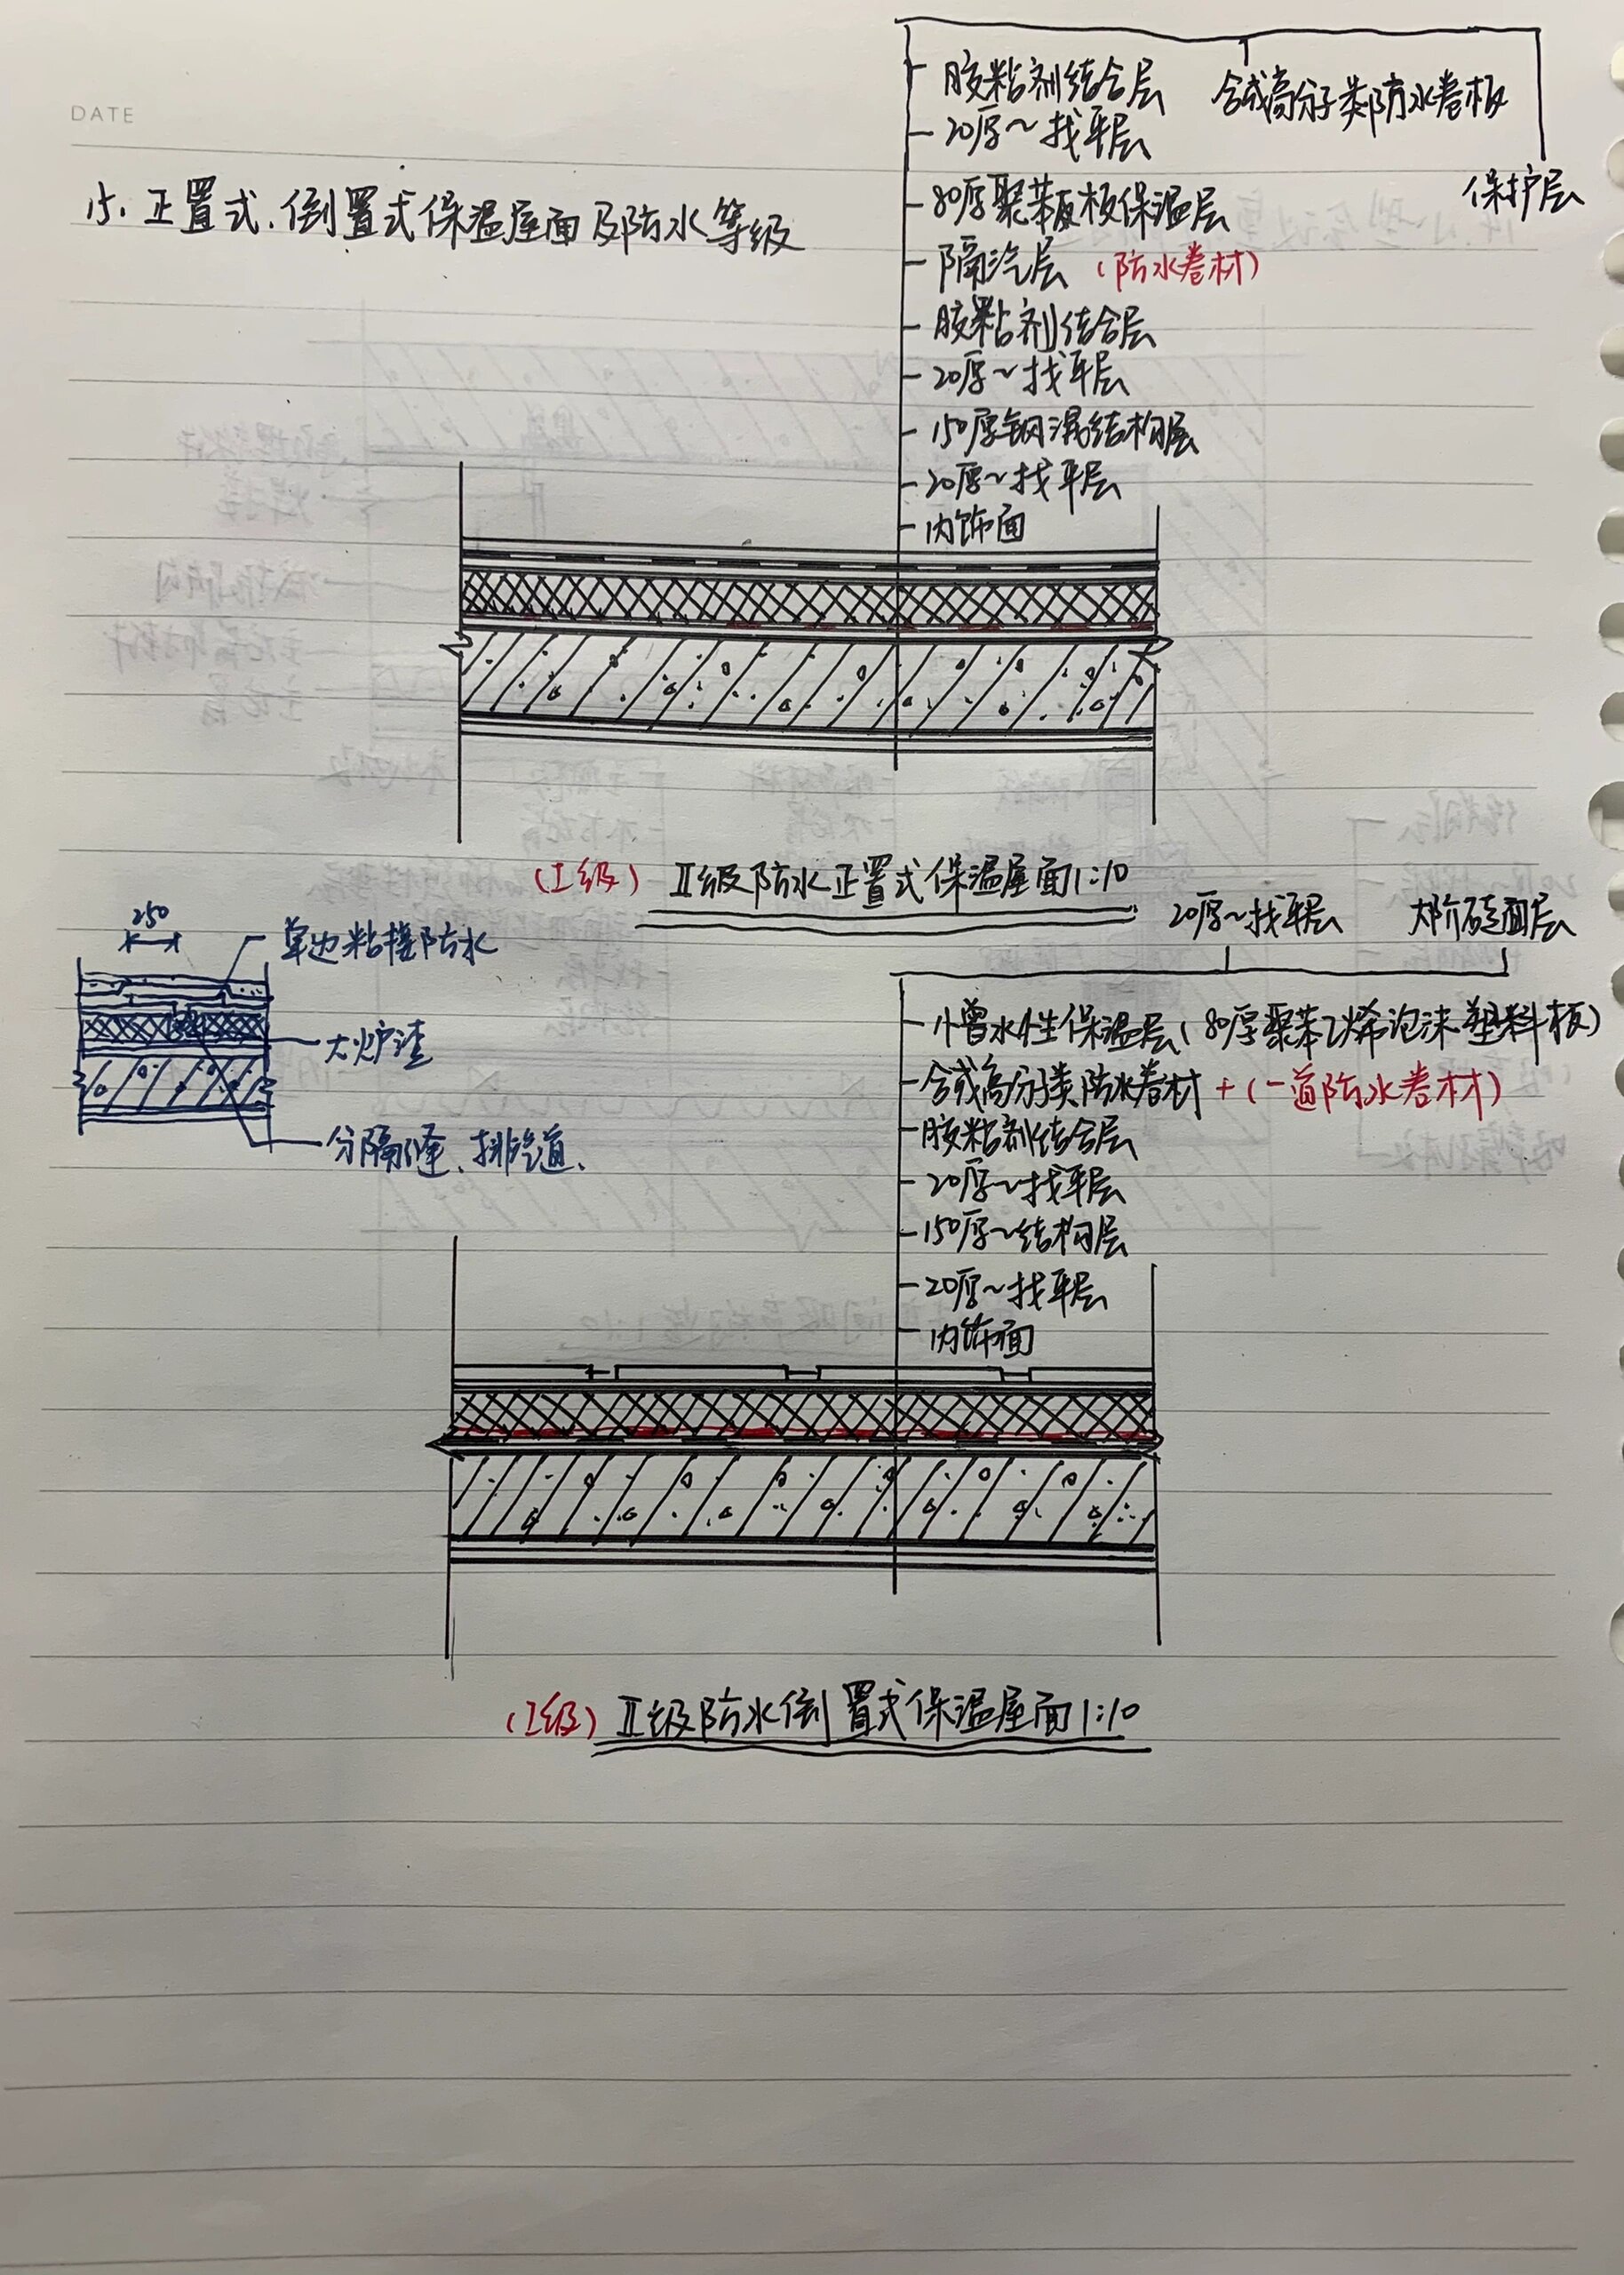 DATE
15. 正置式、倒置式保温屋面及防水等级
保护层
合成高分子类防水卷板
胶粘剂结合层
20厚~找平层
80厚聚苯板保温层
隔汽层 (防水卷材)
胶粘剂结合层
20厚~找平层
150厚钢混结构层
20厚~找平层
内饰面
(I级) II级防水正置式保温屋面1:10
250
单边粘接防水
大炉渣
分隔缝、排汽道、
大阶砖面层
20厚~找平层
憎水性保温层(80厚聚苯乙烯泡沫塑料板)
合成高分子类防水卷材 + (一道防水卷材)
胶粘剂结合层
20厚~找平层
150厚~结构层
20厚~找平层
内饰面
(I级) II级防水倒置式保温屋面1:10